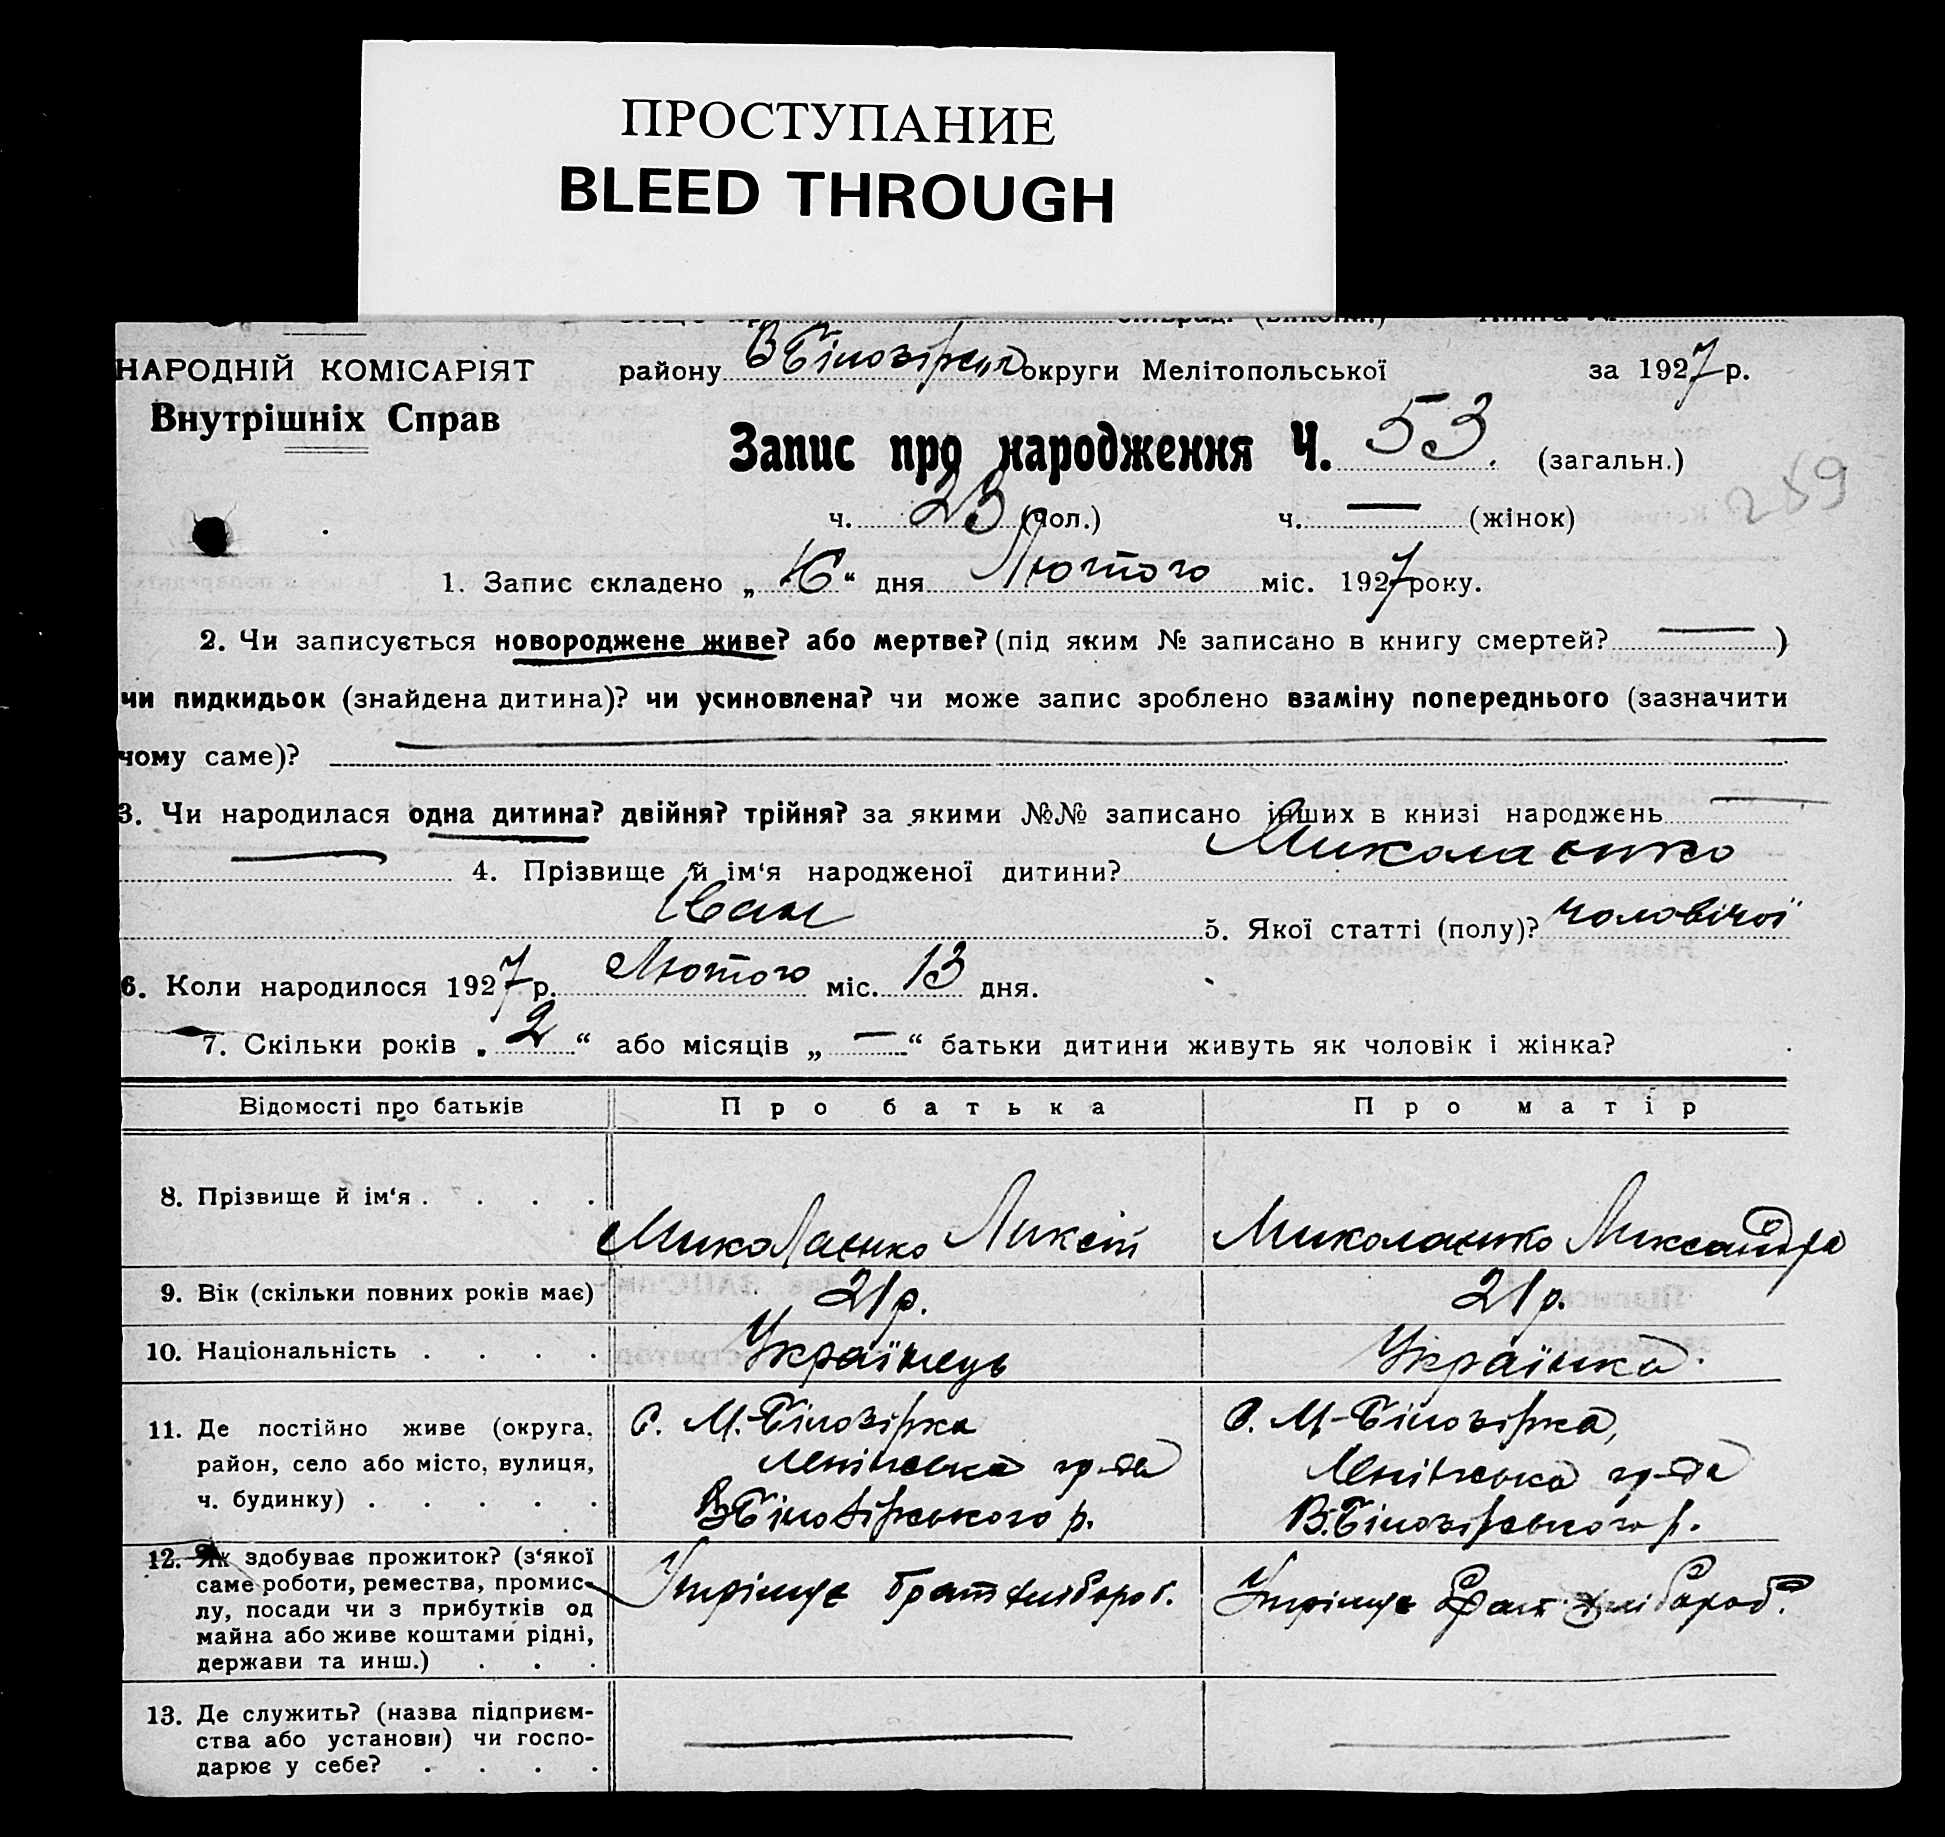 ПРОСТУПАНИЕ
BLEED THROUGH
НАРОДНІЙ КОМІСАРІЯТ
Внутрішніх Справ
району В Білозірка округи Мелітопольської за 1927 р.
Запис про народження Ч. 53. (загальн.)
ч. 23 (чол.) ч. — (жінок)
259
1. Запис складено „ “ дня Лютого міс. 1927 року.
2. Чи записується новороджене живе? або мертве? (під яким № записано в книгу смертей? — )
чи пидкидьок (знайдена дитина)? чи усиновлена? чи може запис зроблено взаміну попереднього (зазначити
чому саме)? —
3. Чи народилася одна дитина? двійня? трійня? за якими №№ записано інших в книзі народжень —
— 4. Прізвище й ім‘я народженої дитини? Миколаенко
Іван 5. Якої статті (полу)? чоловічої
6. Коли народилося 1927 р. Лютого міс. 13 дня.
7. Скільки років „ 2 “ або місяців „ — “ батьки дитини живуть як чоловік і жінка?
Відомості про батьків Про батька Про матір
8. Прізвище й ім‘я . . . . Миколаенко Ликсій Миколаенко Ликсандра
9. Вік (скільки повних років має) 21 р. 21 р.
10. Національність . . . . Українець Українка.
11. Де постійно живе (округа, С. М.-Білозірка С. М-Білозірка,
район, село або місто, вулиця, Ленінська гр-да Ленінська гр-да
ч. будинку) . . . . . В Білозірського р. В. Білозірського р.
12. Як здобуває прожиток? (з‘якої
саме роботи, ремества, промис-
лу, посади чи з прибутків од
майна або живе коштами рідні,
держави та инш.) . . .
Утрімує брат хлібороб. Утрімує брат хлібороб.
13. Де служить? (назва підприєм-
ства або установи) чи госпо-
дарює у себе? . . . . — —